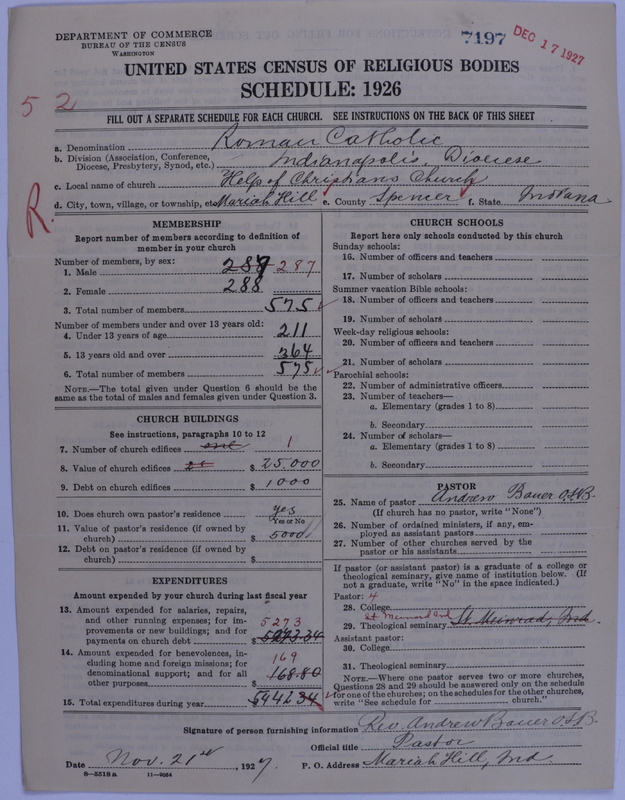 DEPARTMENT OF COMMERCE
BUREAU OF THE CENSUS
WASHINGTON
7197
DEC 17 1927
UNITED STATES CENSUS OF RELIGIOUS BODIES
SCHEDULE: 1926
52
FILL OUT A SEPARATE SCHEDULE FOR EACH CHURCH. SEE INSTRUCTIONS ON THE BACK OF THIS SHEET
a. Denomination Roman Catholic
b. Division (Association, Conference, Diocese, Presbytery, Synod, etc.) Indianapolis, Diocese
c. Local name of church Help of Christians Church
d. City, town, village, or township, etc. Mariah Hill e. County Spencer f. State Indiana
R.
MEMBERSHIP
Report number of members according to definition of
member in your church
Number of members, by sex:
1. Male 287 287
2. Female 288
3. Total number of members 575
Number of members under and over 13 years old:
4. Under 13 years of age 211
5. 13 years old and over 364
6. Total number of members 575
NOTE.—The total given under Question 6 should be the
same as the total of males and females given under Question 3.
CHURCH BUILDINGS
See instructions, paragraphs 10 to 12
7. Number of church edifices one 1
8. Value of church edifices $ 25.000
9. Debt on church edifices $ 1000
10. Does church own pastor's residence yes
Yes or No
11. Value of pastor's residence (if owned by
church) $ 5000
12. Debt on pastor's residence (if owned by
church) $
EXPENDITURES
Amount expended by your church during last fiscal year
13. Amount expended for salaries, repairs,
and other running expenses; for im-
provements or new buildings; and for
payments on church debt $ 5273.34
5273
14. Amount expended for benevolences, in-
cluding home and foreign missions; for
denominational support; and for all
other purposes 168.80
169
15. Total expenditures during year $ 5442 34
CHURCH SCHOOLS
Report here only schools conducted by this church
Sunday schools:
16. Number of officers and teachers
17. Number of scholars
Summer vacation Bible schools:
18. Number of officers and teachers
19. Number of scholars
Week-day religious schools:
20. Number of officers and teachers
21. Number of scholars
Parochial schools:
22. Number of administrative officers
23. Number of teachers—
a. Elementary (grades 1 to 8)
b. Secondary
24. Number of scholars—
a. Elementary (grades 1 to 8)
b. Secondary
PASTOR
25. Name of pastor Andrew Bauer O.S.B.
(If church has no pastor, write "None")
26. Number of ordained ministers, if any, em-
ployed as assistant pastors
27. Number of other churches served by the
pastor or his assistants
If pastor (or assistant pastor) is a graduate of a college or
theological seminary, give name of institution below. (If
not a graduate, write "No" in the space indicated.)
Pastor: 4
28. College
St Meinrad Ind
29. Theological seminary St. Meinrad, Ind.
Assistant pastor:
30. College
31. Theological seminary
NOTE.—Where one pastor serves two or more churches,
Questions 28 and 29 should be answered only on the schedule
for one of the churches; on the schedules for the other churches,
write "See schedule for church."
Signature of person furnishing information Rev. Andrew Bauer O.S.B.
Official title Pastor
Date Nov. 21st, 1927. P. O. Address Mariah Hill, Ind.
8—5518a 11—9054